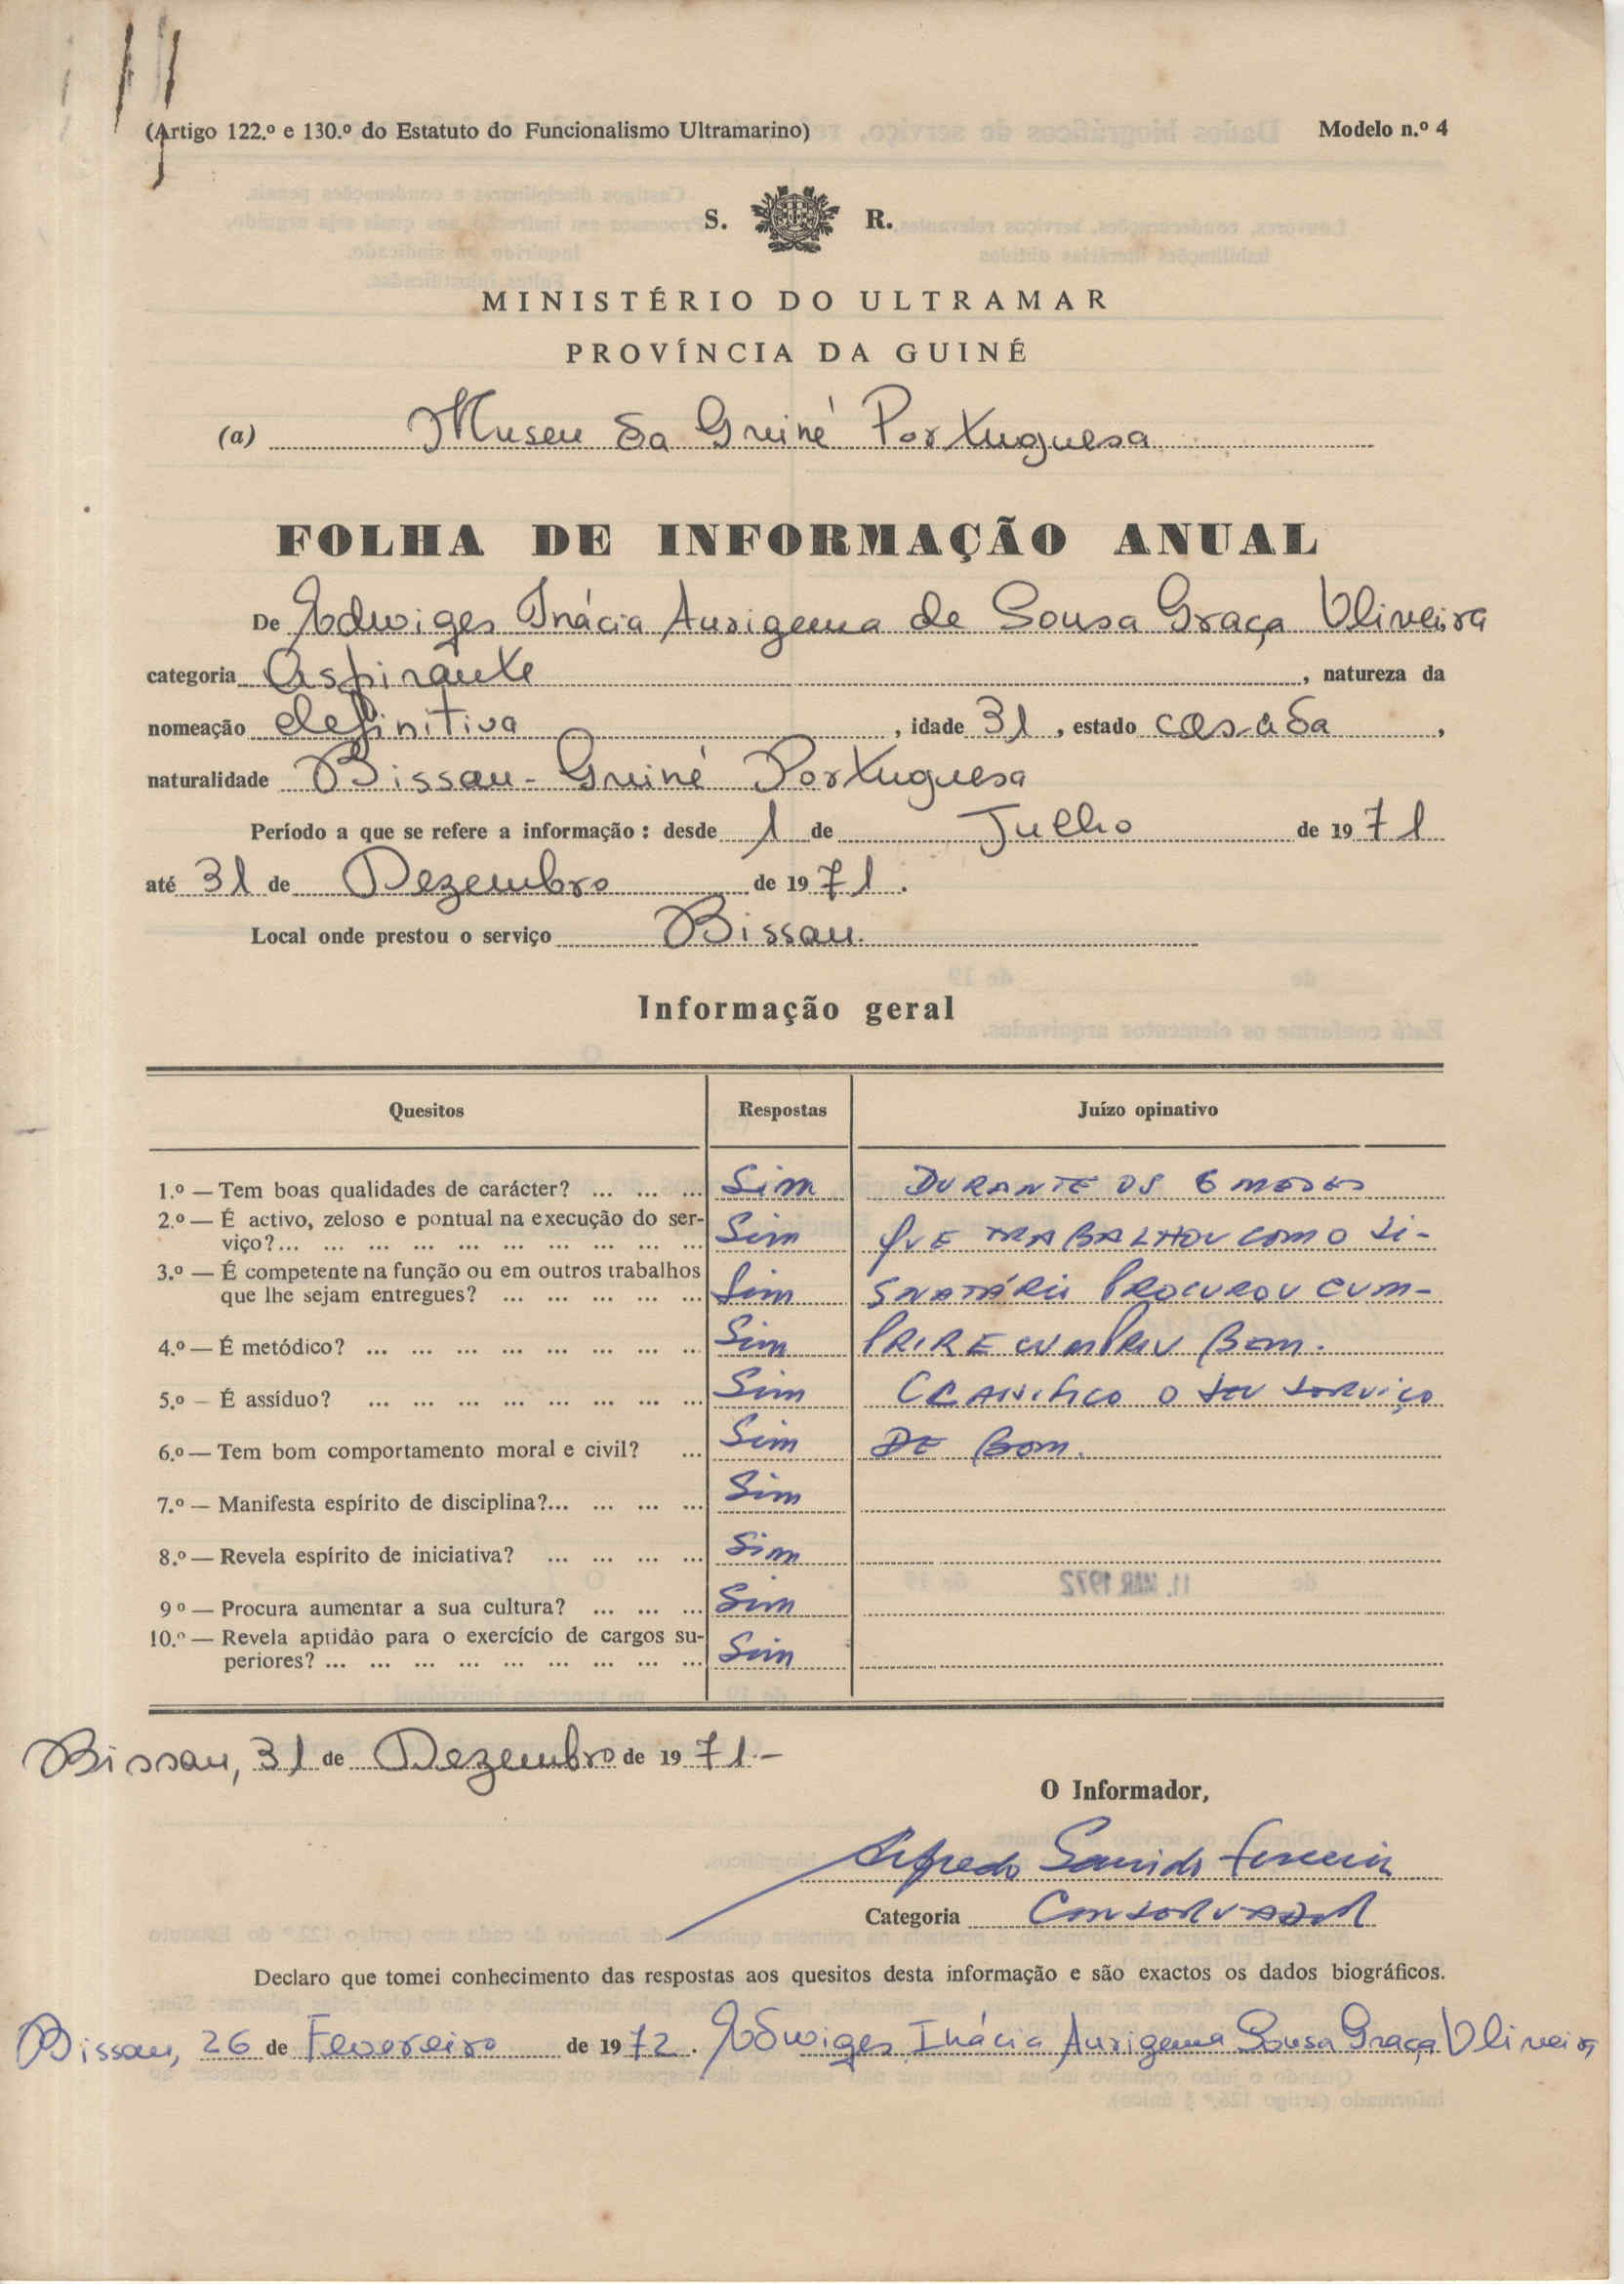 (Artigo 122.º e 130.º do Estatuto do Funcionalismo Ultramarino) Modelo n.º 4
S. R.
MINISTÉRIO DO ULTRAMAR
PROVÍNCIA DA GUINÉ
(a) Museu da Guiné Portuguesa
FOLHA DE INFORMAÇÃO ANUAL
De Edwiges Inácia Aurigema de Sousa Graça Oliveira
categoria Aspirante, natureza da
nomeação definitiva, idade 31, estado casada,
naturalidade Bissau - Guiné Portuguesa
Período a que se refere a informação: desde 1 de Julho de 1971
até 31 de Dezembro de 1971.
Local onde prestou o serviço Bissau.
Informação geral
Quesitos Respostas Juízo opinativo
1.º — Tem boas qualidades de carácter? ... ... ... Sim DURANTE OS 6 MESES
2.º — É activo, zeloso e pontual na execução do ser-
viço?... ... ... ... ... ... ... ... ... ... Sim QUE TRABALHOU COM O SI-
3.º — É competente na função ou em outros trabalhos
que lhe sejam entregues? ... ... ... ... ... Sim GNATÁRIO PROCUROU CUM-
4.º — É metódico? ... ... ... ... ... ... ... ... Sim PRIR E CUMPRIU BEM.
5.º — É assíduo? ... ... ... ... ... ... ... ... Sim CLASSIFICO O SEU SERVIÇO
6.º — Tem bom comportamento moral e civil? ... Sim DE BOM.
7.º — Manifesta espírito de disciplina?... ... ... ... Sim
8.º — Revela espírito de iniciativa? ... ... ... ... Sim
9º — Procura aumentar a sua cultura? ... ... ... Sim
10.º — Revela aptidão para o exercício de cargos su-
periores? ... ... ... ... ... ... ... ... ... Sim
Bissau, 31 de Dezembro de 1971.-
O Informador,
Alfredo Ferreira
Categoria CONSERVADOR
Declaro que tomei conhecimento das respostas aos quesitos desta informação e são exactos os dados biográficos.
Bissau, 26 de Fevereiro de 1972. Edwiges Inácia Aurigema Sousa Graça Oliveira